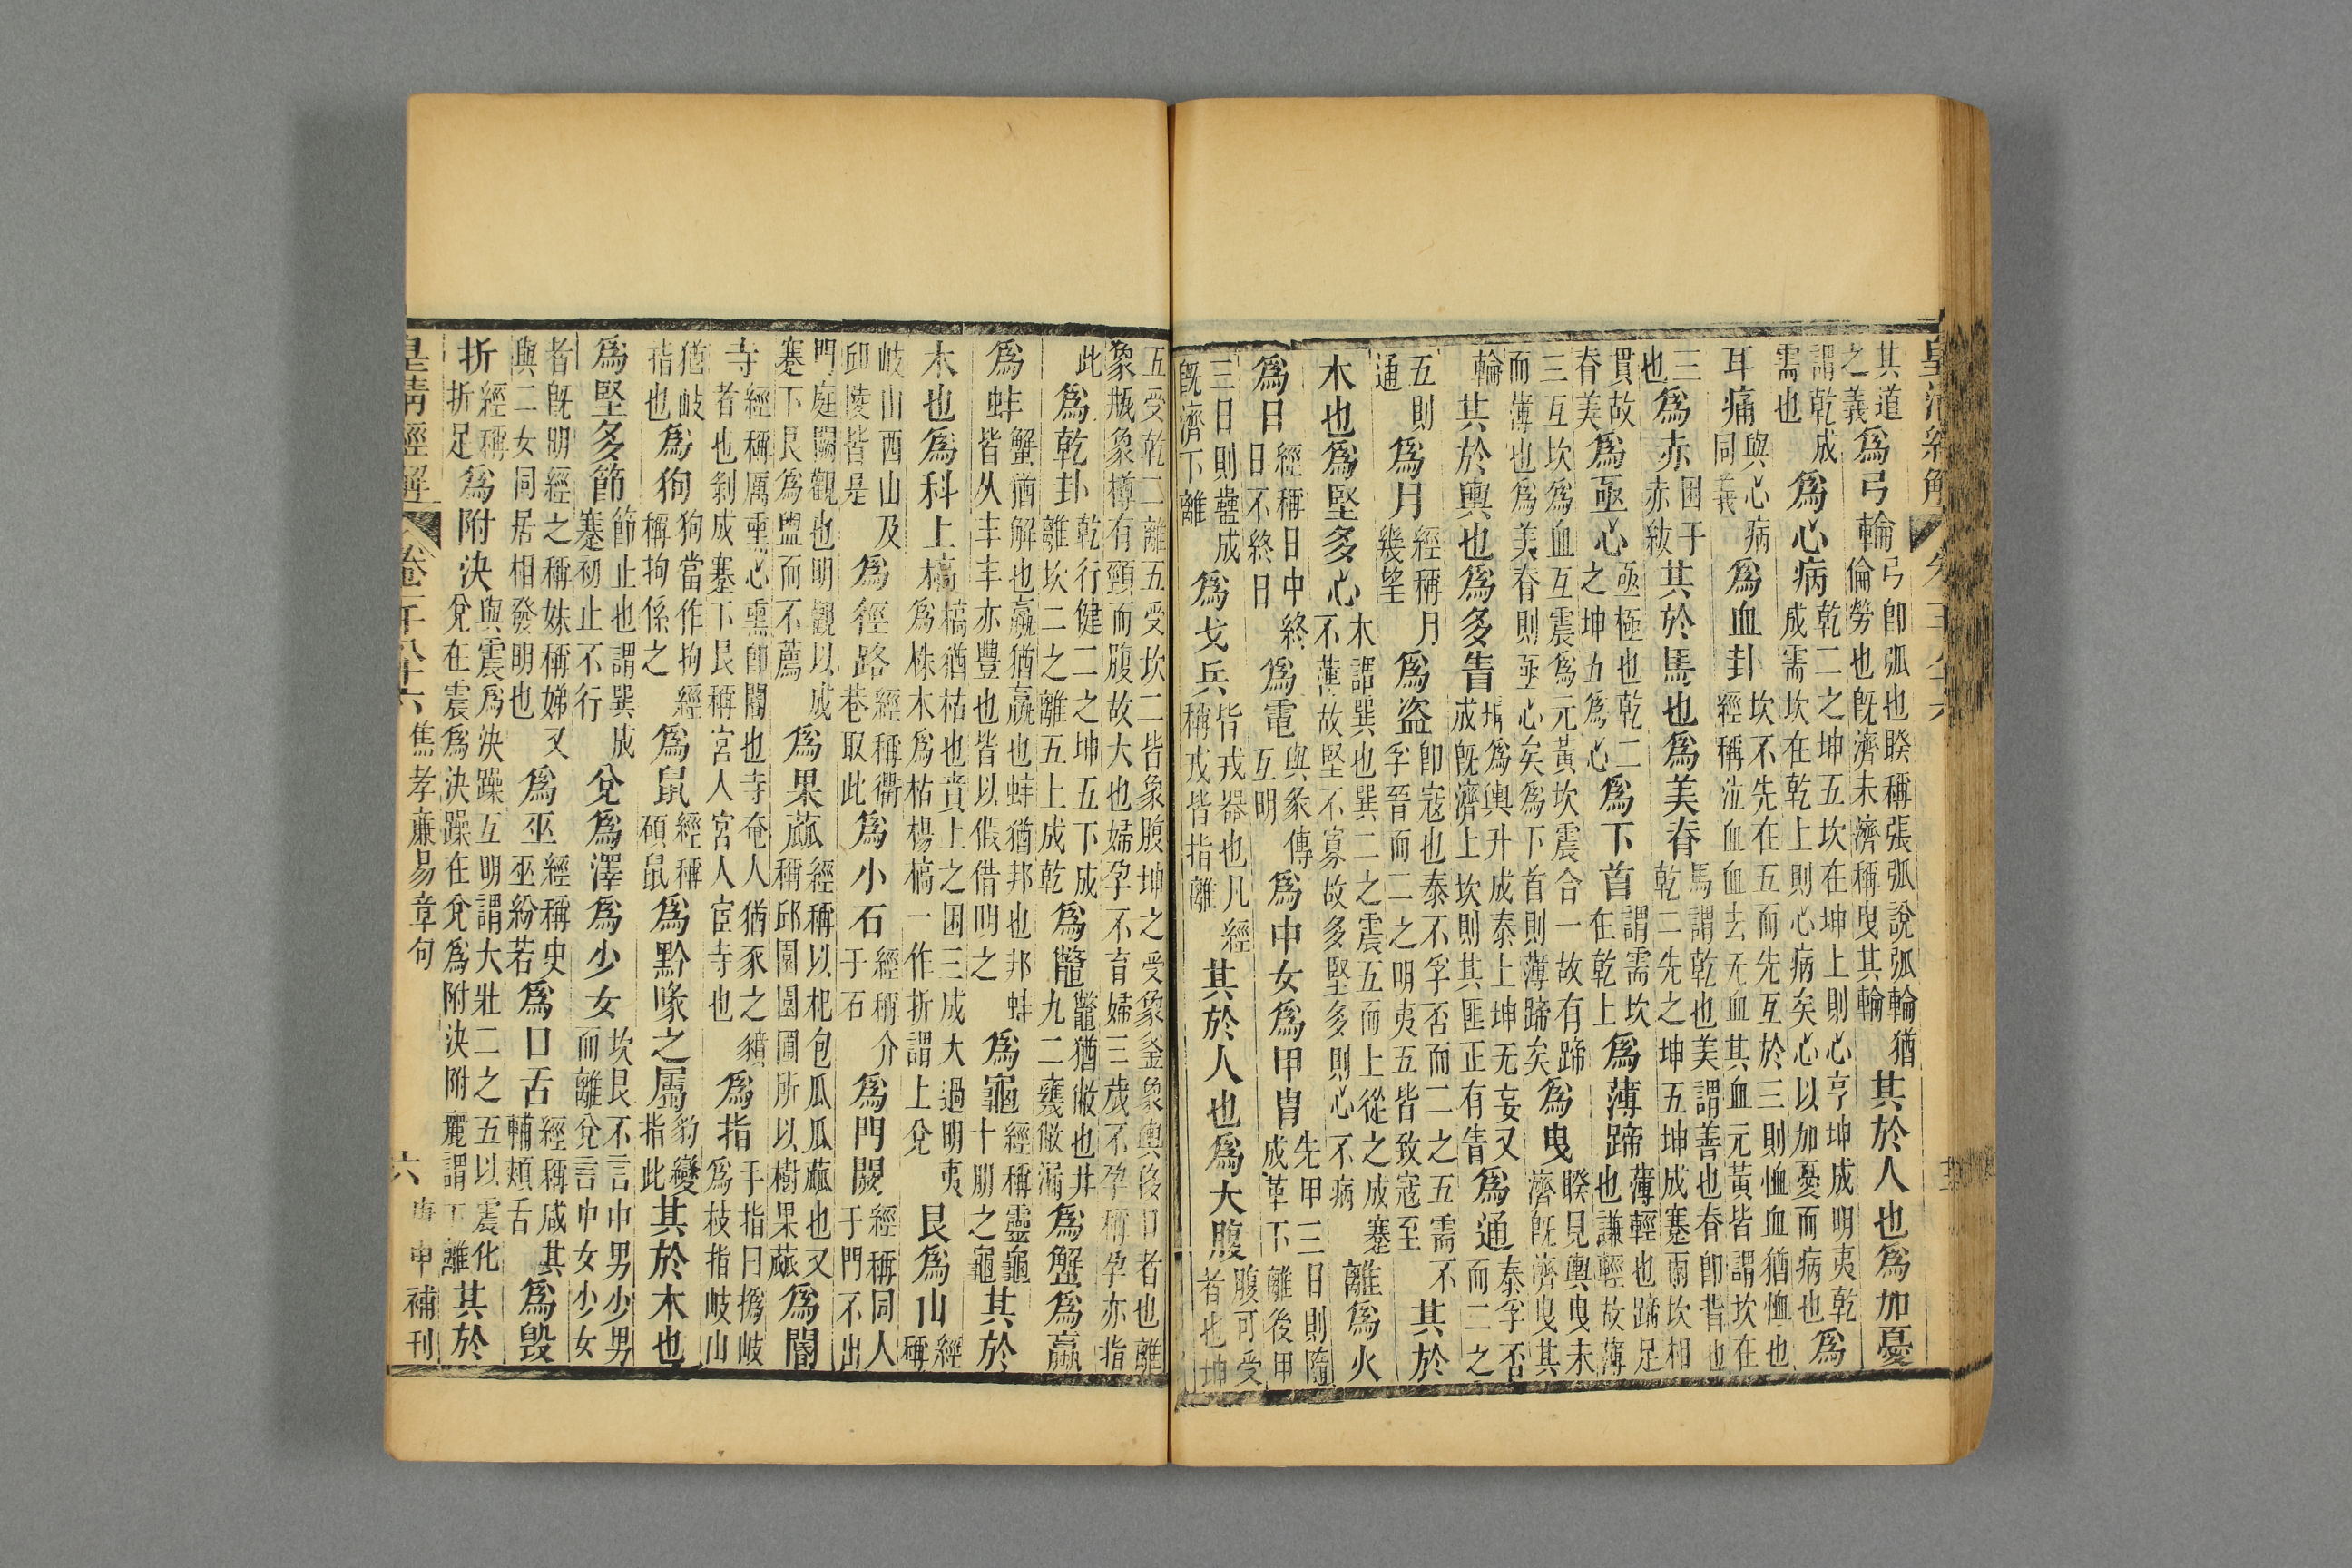 皇清經解 卷千八十六
其道之義為弓輪弓即弧也睽稱張弧說弧輪猶倫勞也既濟未濟稱曳其輪其於人也為加憂
謂乾成需也為心病乾二之坤五坎在坤上則心亨坤成明夷乾成需坎在乾上則心病矣心以加憂而病也為
耳痛與心病同義為血卦坎不先在五而先互於三則恤血猶恤也經稱泣血血去无血其血元黃皆謂坎在
三也為赤困于赤紱其於馬也為美脊馬謂乾也美謂善也脊即背也乾二先之坤五坤成蹇雨坎相
貫故脊美為亟心亟極也乾二之坤五為心為下首謂需坎在乾上為薄蹄薄輕也蹄足也謙輕故薄
三互坎為血互震為元黃坎震合一故有蹄而薄也為美脊則亟心矣為下首則薄蹄矣為曳睽見輿曳未濟既濟曳其
輪其於輿也為多眚坤為輿升成泰上坤无妄又成既濟上坎則其匪正有眚為通泰孚否而二之
五則通為月經稱月幾望為盜即寇也泰不孚否而二之五需不孚晉而二之明夷五皆致寇至其於
木也為堅多心木謂巽也巽二之震五而上從之成蹇不薄故堅不寡故多堅多則心不病離為火
為日經稱日中終日不終日為電與彖傳互明為中女為甲冑先甲三日則隨成革下離後甲
三日則蠱成既濟下離為戈兵皆戎器也凡經稱戎皆指離其於人也為大腹腹可受者也坤
五受乾二離五受坎二皆象腹坤之受象釜象輿後日者也離象瓶象樽有頸而腹故大也婦孕不育婦三歲不孕稱孕亦指
此為乾卦乾行健二之坤五下成離坎二之離五上成乾為鼈鼈猶敝也井九二甕敝漏為蟹為蠃
為蚌蟹猶解也蠃猶蠃也蚌猶邦也邦蚌皆从丰丰亦豐也皆以假借明之為龜經稱靈龜十朋之龜其於
木也為科上槁槁猶枯也賁上之困三成大過明夷為株木為枯楊槁一作折謂上兌艮為山經稱
岐山西山及邱陵皆是為徑路經稱衢巷取此為小石經稱介于石為門闕經稱同人于門不出
門庭闚觀也明觀以成蹇下艮為盥而不薦為果蓏經稱以杞包瓜瓜蓏也又稱邱園園圃所以樹果蓏為閽
寺經稱厲熏心熏即閽也寺奄人猶豕之豶者也剝成蹇下艮稱宮人宮人宦寺也為指手指曰撝岐為枝指岐山
猶岐指也為狗狗當作拘經稱拘係之為鼠經稱碩鼠為黔喙之屬豹變指此其於木也
為堅多節節止也謂巽成蹇初止不行兌為澤為少女坎艮不言中男少男而離兌言中女少女
者既明經之稱妹稱娣又與二女同居相發明也為巫經稱史巫紛若為口舌經稱咸其輔頰舌為毀
折經稱折足為附決與震為決躁互明謂大壯二之五以震化兌在震為決躁在兌為附決附麗謂下離其於
皇清經解 卷千八十六 焦孝廉易章句 六 庚申補刊